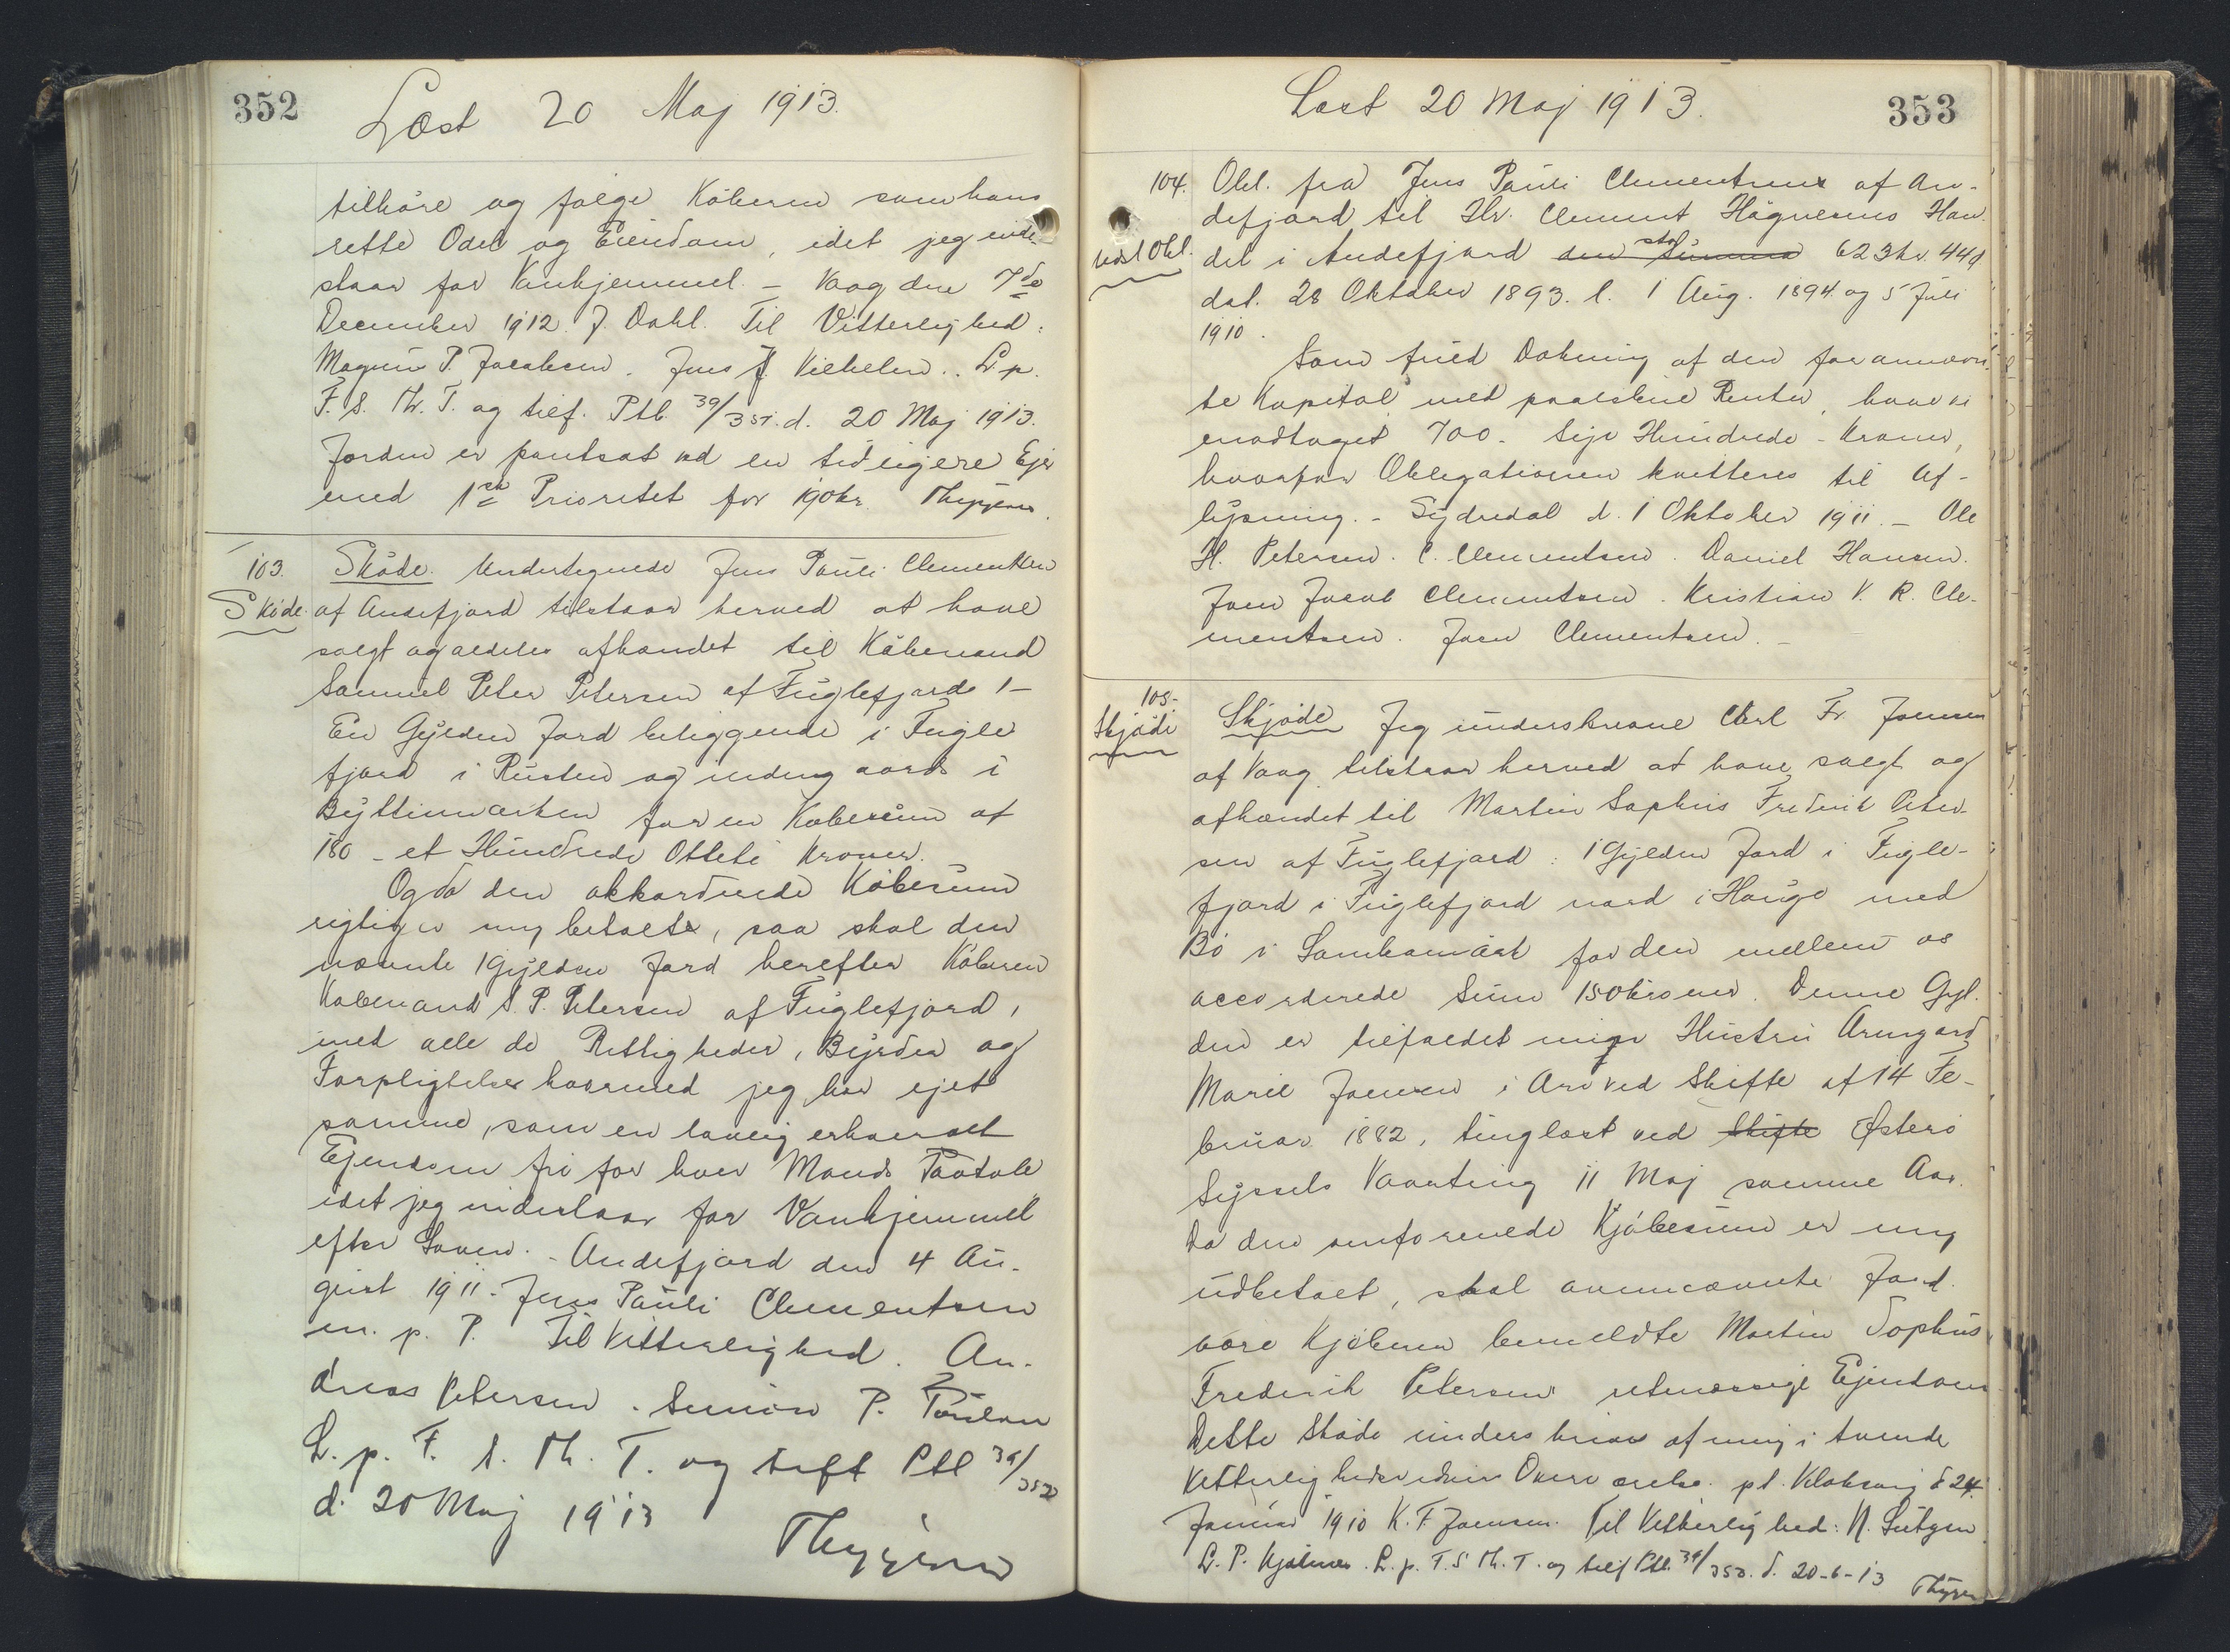 352
Læst 20 Maj 1913.
tilhöre og følge Köberen som hans
rette Odel og Eiendom, idet jeg inde
staar for Vanhjemmel. - Vaag den 7de
December 1912. J. Dahl. Til Vitterlighed:
Magnus P. Jacobsen. Jens J. Vilhelm.. L. p.
F. S. Th. T. og tilf. Ptb. 39/351. d. 20 Maj 1913.
Jorden er pantsat ved en tidligere Ejer
med 1ste Prioritet for 190 kr. Thygesen.
103. Sköde. Undertegnede Jens Pauli Clementsen
Sköde. af Andefjord tilstaar herved at have
solgt og aldeles afhændet til Köbmand
Samuel Peter Petersen af Fuglefjord 1 -
En Gylden Jord beliggende i Fugle
fjord i Rusten og inden gaards i
Byttinmarken for en Købesum af
180 - et Hundrede Otteti Kroner.
Og da den akkorderede Köbesum
rigtig er mig betalt, saa skal den
nævnte 1 Gylden Jord herefter Köberen
Købmand S. P. Petersen af Fuglefjord,
med alle de Rettigheder, Byrder og
Forpligtelser hvormed jeg har ejet
samme, som en lovlig erhvervet
Ejendom fri for hver Mands Paatale
idet jeg indestaar for Vanhjemmel
efter Loven. - Andefjord den 4 Au-
gust 1911. Jens Pauli Clementsen
m. p. P. Til Vitterlighed. An-
dreas Petersen. Simon P. Poulsen
L. p. F. S. Th. T. og tilf. Ptb 39/352
d. 20 Maj 1913
Thygesen
Læst 20 Maj 1913.
353
104. Obl. fra Jens Pauli Clementsen af An-
defjord til Hr. Clement Högnesens Han
udsl Obl. del i Andefjord den stor Summa 623 kr. 44 ø
dat. 28 Oktober 1893. l. 1 Aug. 1894. og 5 Juli
1910.
Som fuld Dækning af den forannævn
te Kapital med paaløbne Renter, have vi
modtaget 700 - Syv Hundrede - Kroner,
hvorfor Obligationen kvitteres til Af-
lysning. - Sydredal d. 1 Oktober 1911. - Ole
H. Petersen. C. Clementsen. Daniel Hansen.
Joen Jacob Clementsen. Kristian V. R. Cle-
mentsen. Joen Clementsen. -
105.
Skjöde Skjöde Jeg underskrevne Carl Fr Joensen
af Vaag tilstaar herved at have solgt og
afhændet til Martin Sophus Frederik Peter-
sen af Fuglefjord: 1 Gylden Jord i Fugle-
fjord i Fuglefjord nord i Hauge med
Bö i for den mellem os
accorderede Sum 150 kroner. Denne Gyl.
den er tilfaldet min Hustru Armgard
Marie Joensen i Arv ved Skifte af 14 Fe-
bruar 1882, tinglæst ved Skifte Østerö
Syssels Vaarting 11 Maj samme Aar.
Da den omforenede Kjöbesum er mig
udbetalt, skal ovennævnte Jord
være Kjöberen bemeldte Martin Sophus
Frederik Petersens retmæssige Ejendom
Dette Sköde underskrives af mig i tvende
Vitterlighedsvidners Overværelse. pt. Klaksvig d 24.
Januar 1910 K. F. Joensen. Til Vitterlighed: N. Lützen
L. P. Kjølbro. L. p. F. S. Th. T. og tilf Ptb. 39/353. d. 20-6-13 Thygesen